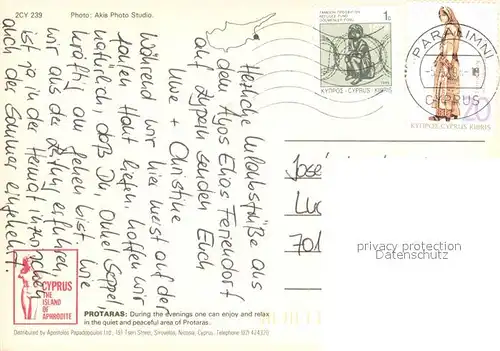 2CY 239 Photo: Akis Photo Studio.
Herzliche Urlaubsgrüße aus
dem Ayos Elios Feriendorf
auf Zypern senden Euch
Uwe + Christine
Während wir hier meist auf der
Haut liegen, hoffen wir
natürlich, daß Du, Onkel
kräftig am gehen bist. Wie
wir aus der Zeitung erfuhren,
ist ja in der Heimat inzwischen
auch der Sommer eingekehrt.
CYPRUS
THE
ISLAND
OF
APHRODITE
PROTARAS: During the evenings one can enjoy and relax
in the quiet and peaceful area of Protaras.
Distributed by Apostolos Papadopoulos Ltd,
Nicosia, Cyprus. Telephone
REFUGEE FUND
1c
ΚΥΠΡΟΣ-CYPRUS-KIBRIS
PARALIMNI
CYPRUS
20
ΚΥΠΡΟΣ-CYPRUS-KIBRIS
José
Luc
701
privacy protection